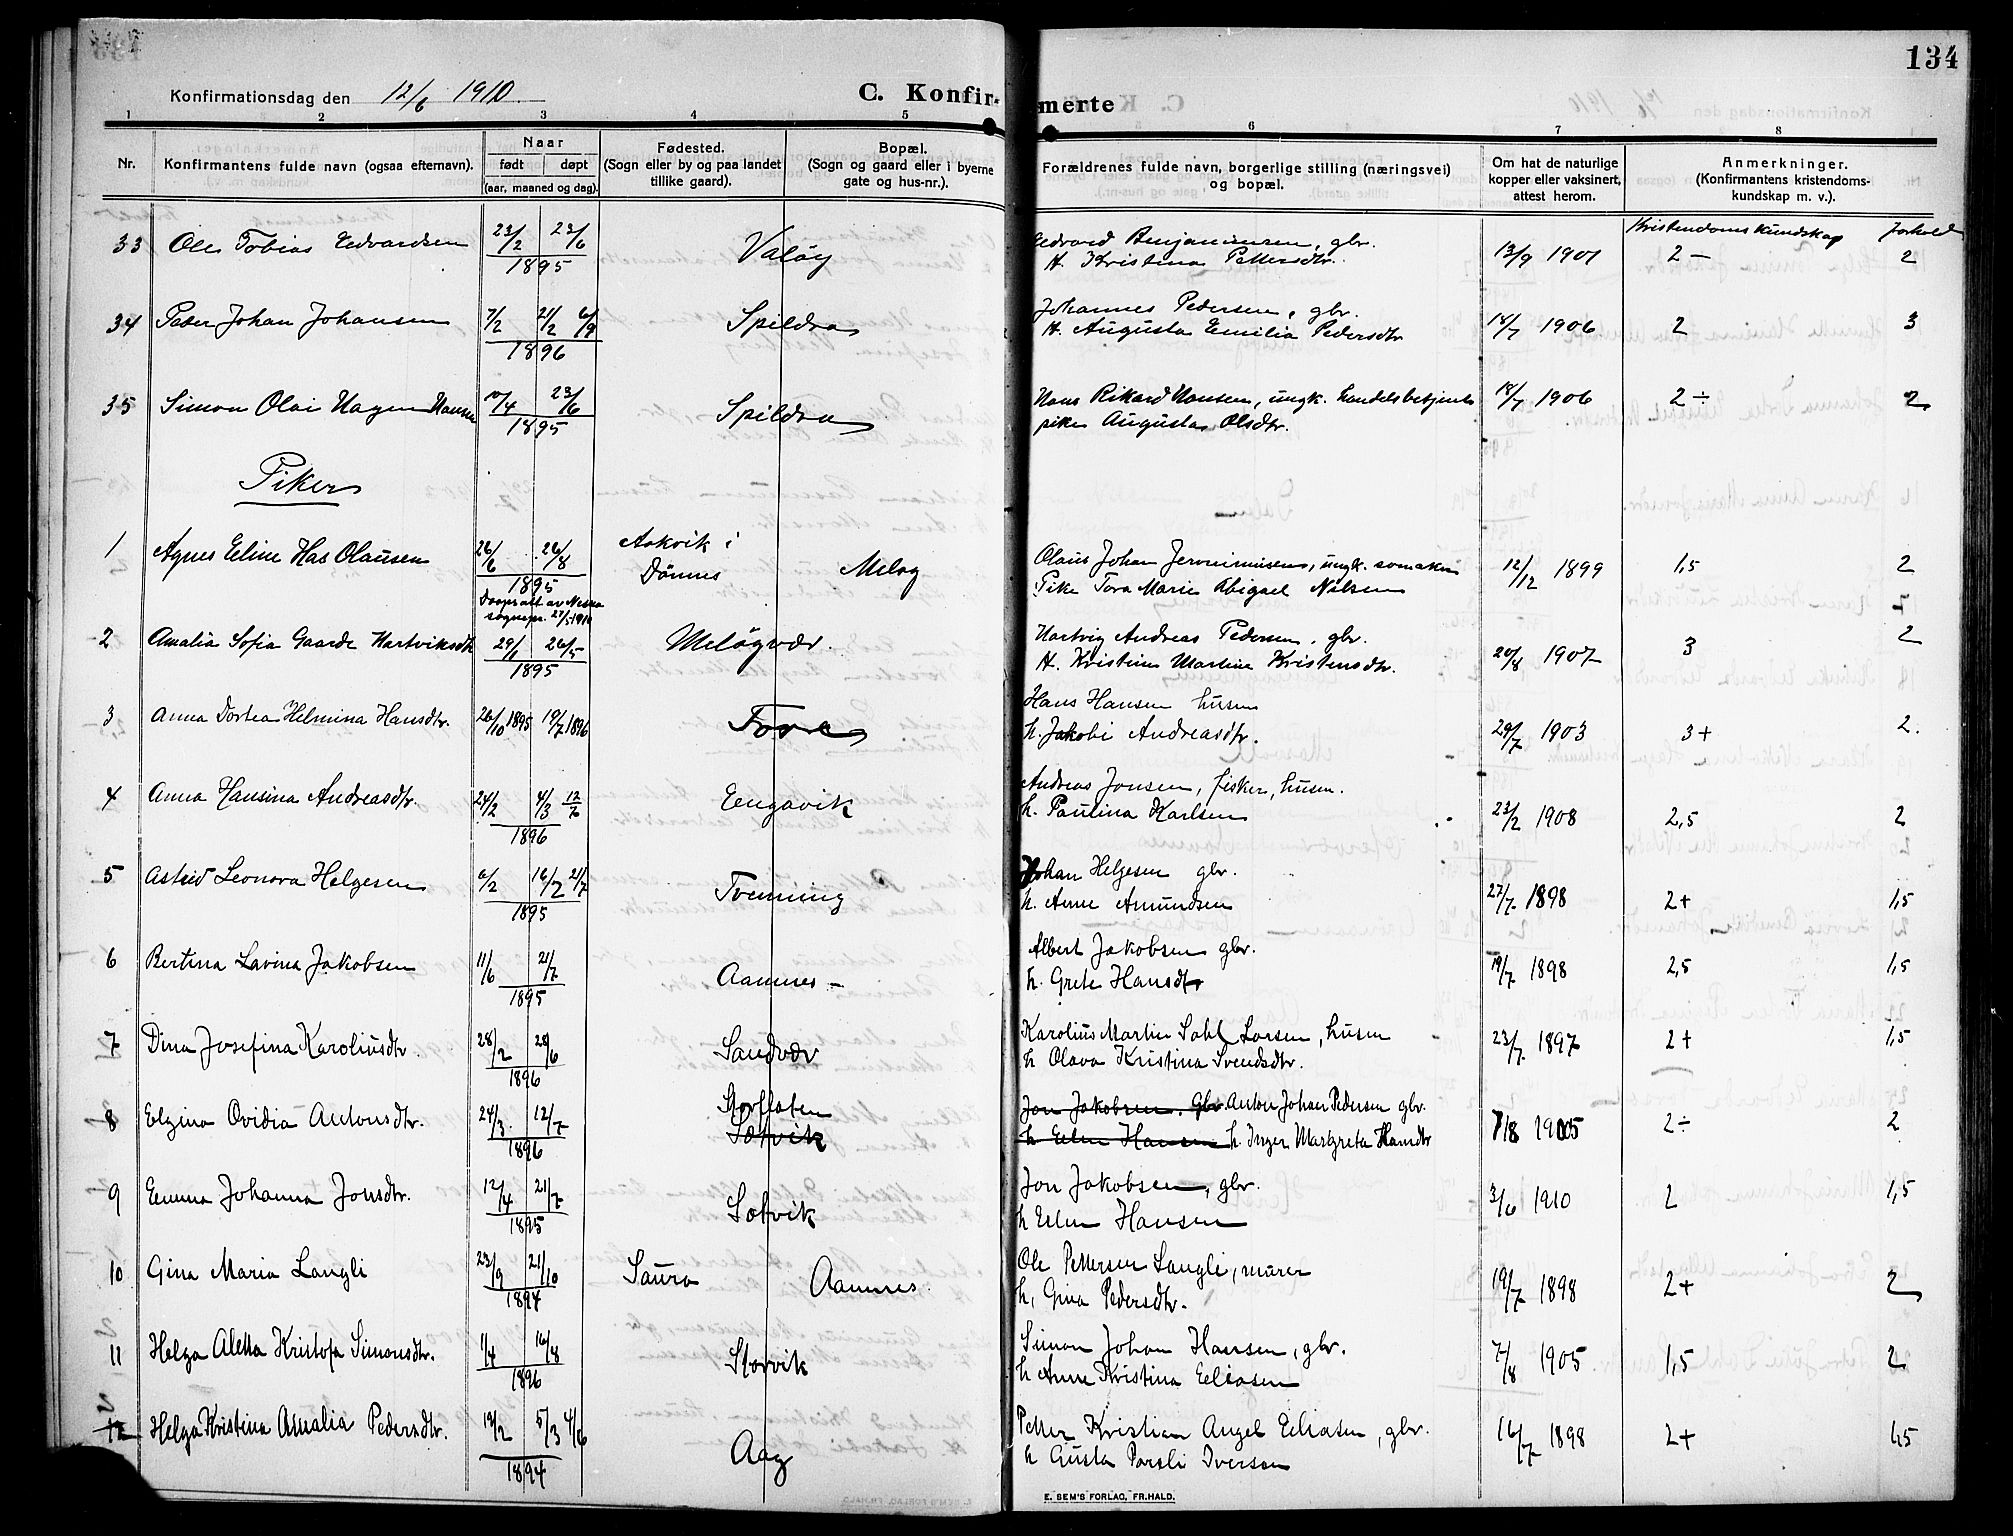 134
Konfirmationsdag den 12/6 1910.
C. Konfir-merte
1 2 3 4 5 6 7 8
Nr. Konfirmantens fulde navn (ogsaa efternavn). Naar født døpt (aar, maaned og dag). Fødested. (Sogn eller by og paa landet tillike gaard). Bopæl. (Sogn og gaard eller i byerne gate og hus-nr.). Forældrenes fulde navn, borgerlige stilling (næringsvei) og bopæl. Om hat de naturlige kopper eller vaksinert, attest herom. Anmerkninger. (Konfirmantens kristendomskundskap m. v.).
Kristendomskundskap forhold
33 Ole Tobias Edvardsen 23/2 23/6 1895 Valøy Edvard Benjaminsen, gbr. 13/9 1901 2 – 2
H. Kristina Pettersdtr.
34 Peder Johan Johansen 7/2 21/2 6/9 1896 Spildra Johannes Pedersen, gbr. 18/7 1906 2 3
H. Augusta Emilia Pedersdtr
35 Simon Olai Hagen Hansen 10/4 23/6 1895 Spildra Hans Rikard Hansen, ungk. handelsbetjent 18/7 1906 2 ÷ 2
pike Augusta Olsdtr.
Piker
1 Agnes Eline Has Olausen 26/6 26/8 1895 Askvik i Dønnes Meløy Olaus Johan Jeronimusen, ungk. 12/12 1899 1,5 2
Pike Tora Marie Abigael Nilsen
Daapsatt av Nesna sognepr. 27/5 1910
2 Amalia Sofia Gaarde Hartviksdtr 29/1 26/5 1895 Meløyvær. Hartvig Andreas Pedersen, gbr. 20/8 1907 3 2
H. Kristine Martine Kristensdtr.
3 Anna Dortea Helmina Hansdtr. 26/10 1895 19/7 1896 Fore Hans Hansen husm 29/7 1903 3+ 2.
h. Jakobi Andreasdtr.
4 Anna Hansina Andreasdtr. 24/2 4/3 12/7 1896 Eengavik Andreas Jonsen, fisker, husm. 23/2 1908 2,5 2
h. Paulina Karlsen
5 Astrid Leonora Helgesen 6/2 16/2 21/7 1895 Tvenning Johan Helgesen gbr. 27/7 1898 2+ 1,5
h. Anne Amundsen
6 Bertina Lavina Jakobsen 11/6 21/7 1895 Aamnes – Albert Jakobsen gbr. 19/7 1898 2,5 1,5
h. Grete Hansdtr
7 Dina Josefina Karoliusdtr 28/2 28/6 1896 Sandvær Karolius Martin Dahl Larsen, husm 23/7 1897 2+ 1,5
h Olava Kristina Svendsdtr.
8 Elgina Ovidia Antonsdtr. 24/3 12/7 1896 Storflaten Søtvik Jon Jakobsen, Gbr. Anton Johan Pedersen gbr. 7/8 1905 2÷ 2
h Elen Hansen h. Inger Margreta Hansdtr
9 Emma Johanna Jonsdtr. 12/4 21/7 1895 Søtvik Jon Jakobsen, gbr. 3/6 1910 2 1,5
h Elen Hansen
10 Gina Maria Langli 23/9 21/10 1894 Saura Aamnes Ole Pettersen Langli, murer 19/7 1898 2+ 2
h, Gina Pedersdtr.
11 Helga Aletta Kristofa Simonsdtr. 1/4 16/8 1896 Storvik Simon Johan Hansen, gbr. 7/8 1905 1,5 2
h Anne Kristina Eliasen
12 Helga Kristina Amalia Pedersdtr. 13/2 5/3 4/6 1894 Aag Petter Kristian Angel Eliasen, gbr. 16/7 1898 2+ 1,5
h Gusta Pareli Iversen
E. SEM'S FORLAG, FR.HALD.